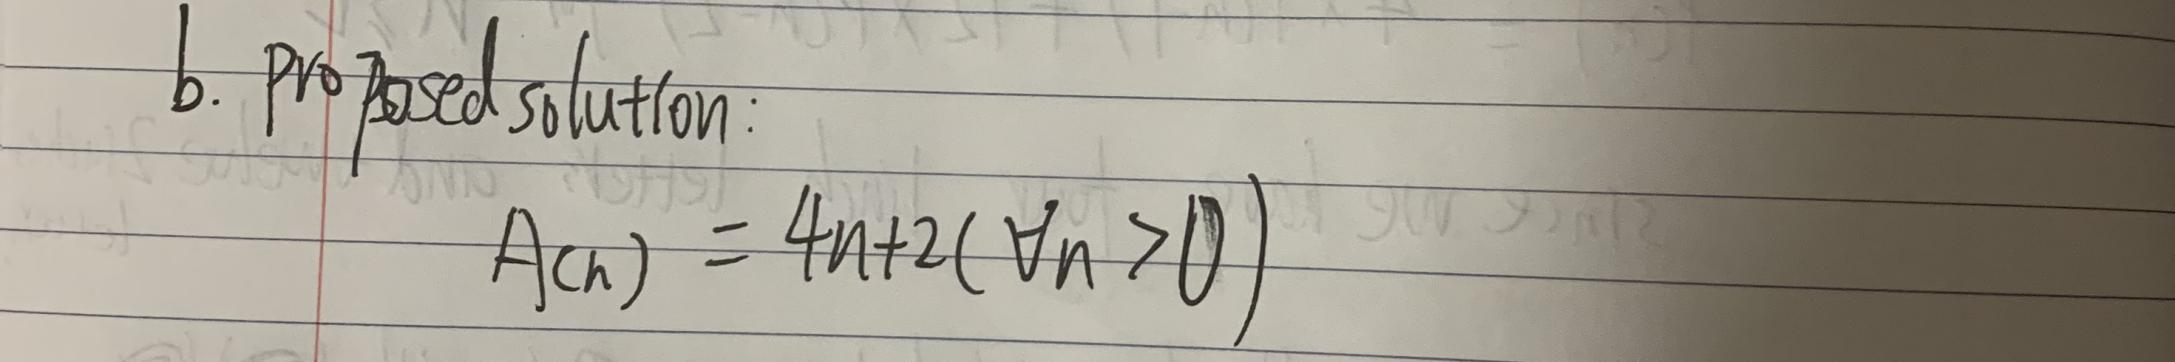 b. proposed solution:
A(n) = 4n+2 (∀n > 0)